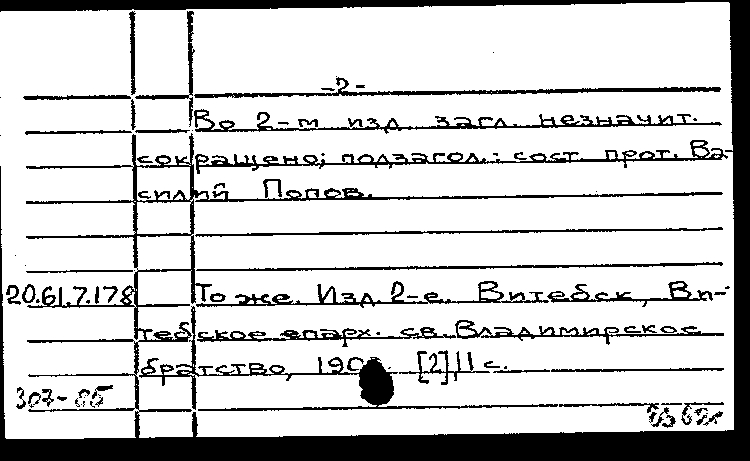 -2-
Во 2-м изд. загл. незначит.
сокращено; подзагол.: сост. прот. Ва-
силий Попов.
20.61.7.178 То же. Изд. 2-е. Витебск, Ви-
тебское епарх. св.-Владимирское
братство, [2], 11 с.
307-